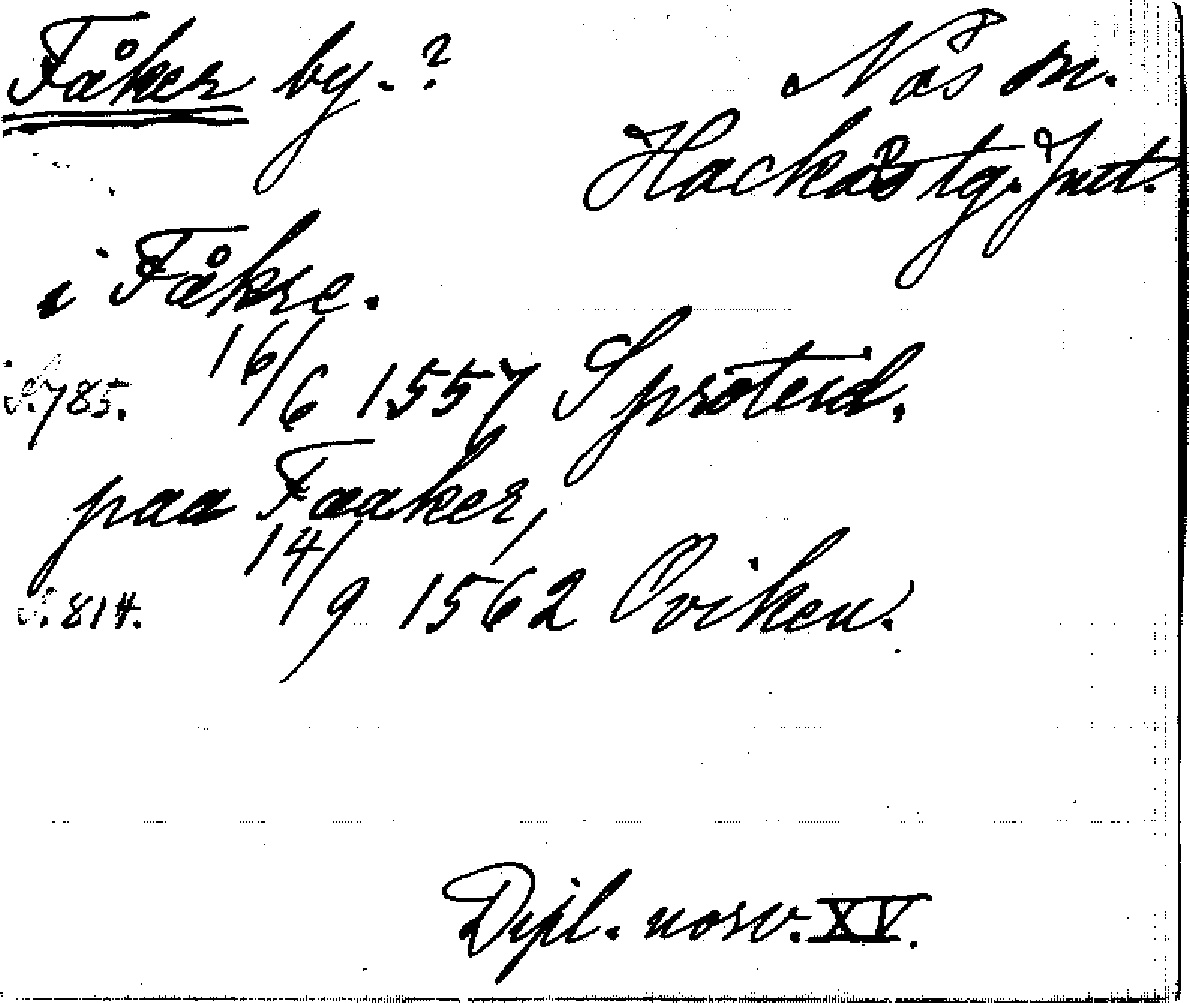 Fåker by.?
Näs sn.
Hackås tg. Jmt.
i Fåkre.
S. 785. 16/6 1557 Sproteid.
paa Faaker,
S. 814. 14/9 1562 Oviken.
Dipl. norv. XV.